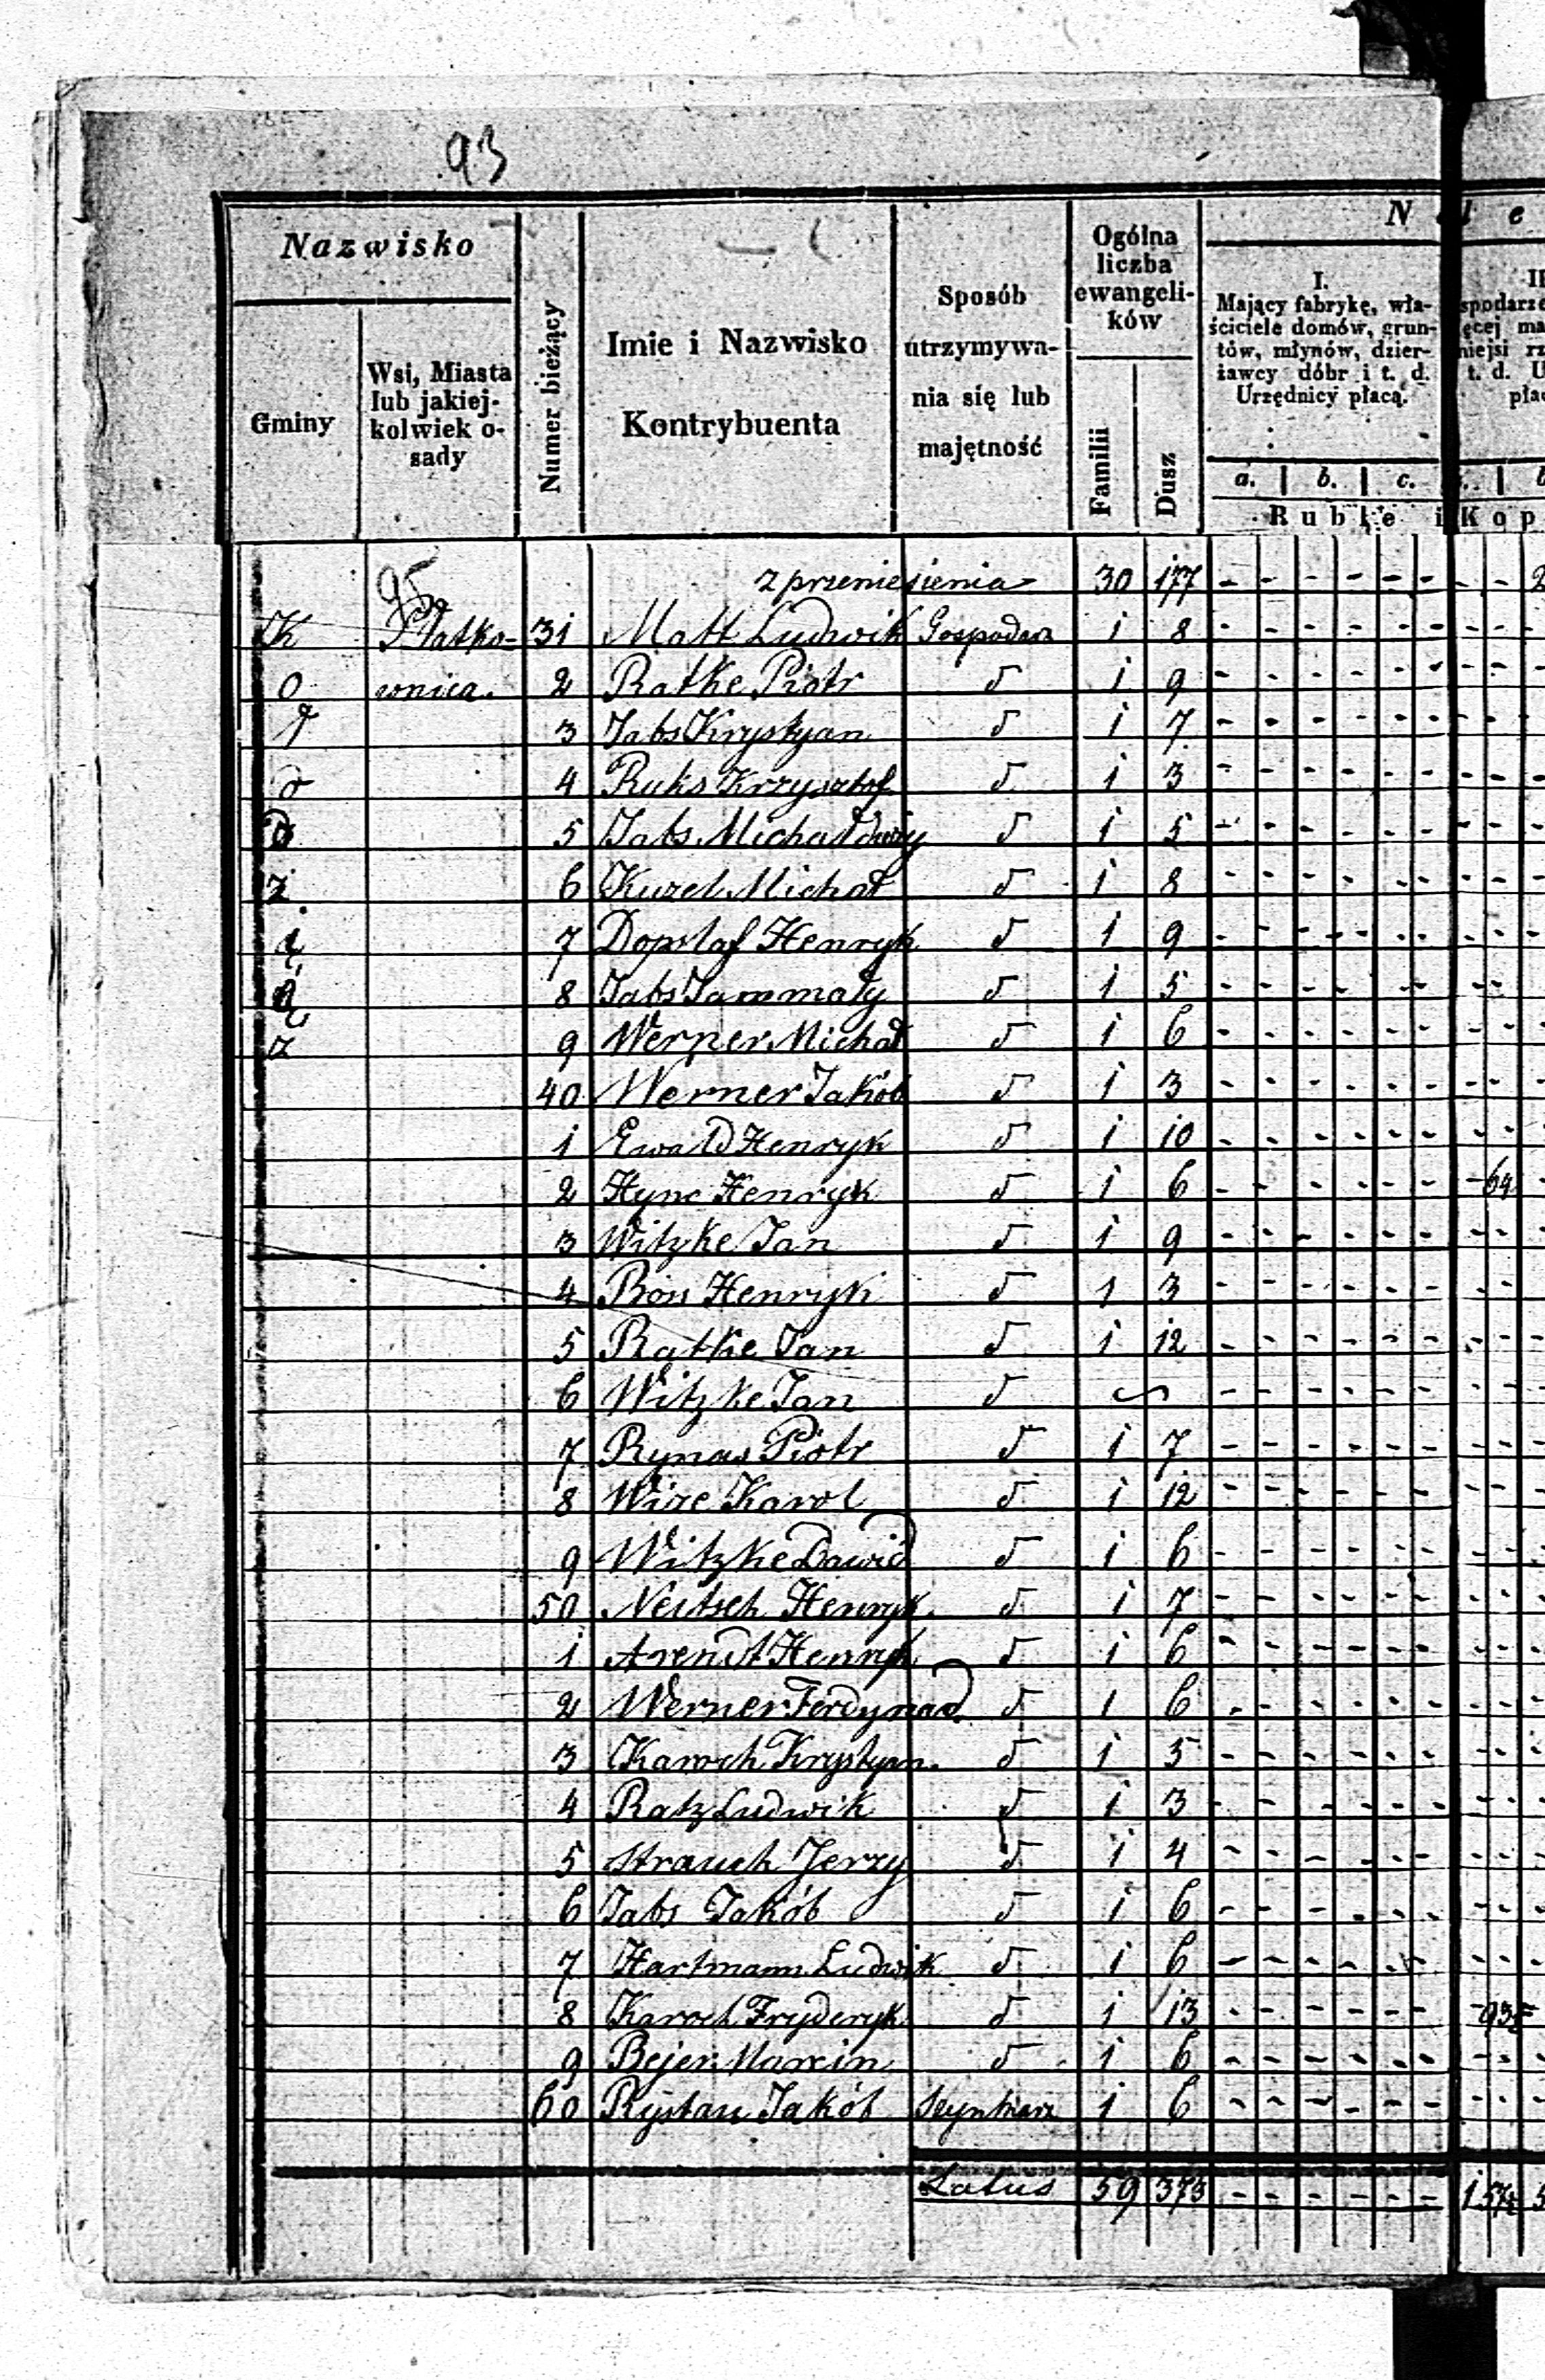 93
Nazwisko
Gminy
Wsi, Miasta lub jakiej-kolwiek o-sady
Numer bieżący
Imie i Nazwisko
Kontrybuenta
Sposób utrzymywa-nia się lub majętność
Ogólna liczba ewangeli-ków
Familii
Dusz
I.
Mający fabrykę, wła-
ściciele domów, grun-
tów, młynów, dzier-
żawcy dóbr i t. d.
Urzędnicy płacą.
a. b. c.
Ruble i Kop
95
z przeniesienia 30 177 - - - - - -
K Płatko- 31 Matt Ludwik Gospodarz 1 8 - - - - - -
o wnica. 2 Ratke Piotr d 1 9 - - - - - -
3 Jabs Krystyan d 1 7 - - - - - -
4 Ruks Krzysztof d 1 3 - - - - - -
5 Jabs Michał duży d 1 5 - - - - - -
z 6 Kuzel Michał d 1 8 - - - - - -
7 Dopslaf Henryk d 1 9 - - - - - -
8 Jabs Jan mały d 1 5 - - - - - -
9 Werner Michał d 1 6 - - - - - -
40 Werner Jakób d 1 3 - - - - - -
1 Ewald Henryk d 1 10 - - - - - -
2 Hync Henryk d 1 6 - - - - - - 64
3 Witzke Jan d 1 9 - - - - - -
4 Henryk d 1 3 - - - - - -
5 Ratke Jan d 1 12 - - - - - -
6 Witzke Jan d - - - - - -
7 Rymas Piotr d 1 7 - - - - - -
8 Wize Karol d 1 12 - - - - - -
9 Witzke Dawid d 1 6 - - - - - -
50 Neitsch Henryk d 1 7 - - - - - -
1 Arendt Henryk d 1 6 - - - - - -
2 Werner Ferdynad d 1 6 - - - - - -
3 Karoch Krystyan d 1 5 - - - - - -
4 Ratz Ludwik d 1 3 - - - - - -
5 Strauch Jerzy d 1 4 - - - - - -
6 Jabs Jakób d 1 6 - - - - - -
7 Hartmann Ludwik d 1 6 - - - - - -
8 Karoch Fryderyk d 1 13 - - - - - -
9 Bejer Marcin d 1 6 - - - - - -
60 Rystau Jakób Młynarz 1 6 - - - - - -
Latus 59 373 - - - - - -